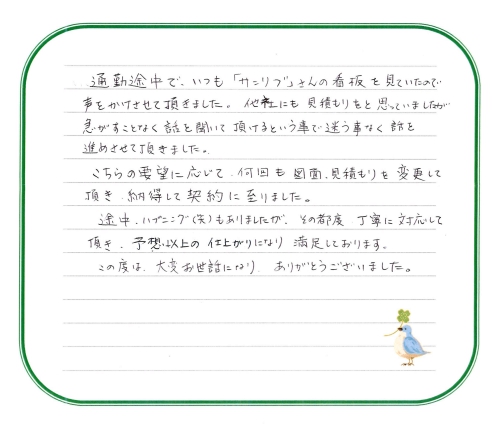 通勤途中で、いつも「サンリブ」さんの看板を見ていたので
声をかけさせて頂きました。他社にも見積もりをと思っていましたが
急がすことなく話を聞いて頂けるという事で迷う事なく話を
進めさせて頂きました。
こちらの要望に応じて、何回も図面、見積もりを変更して
頂き、納得して契約に至りました。
途中、ハプニング(笑)もありましたが、その都度丁寧に対応して
頂き、予想以上の仕上がりになり満足しております。
この度は、大変お世話になり、ありがとうございました。